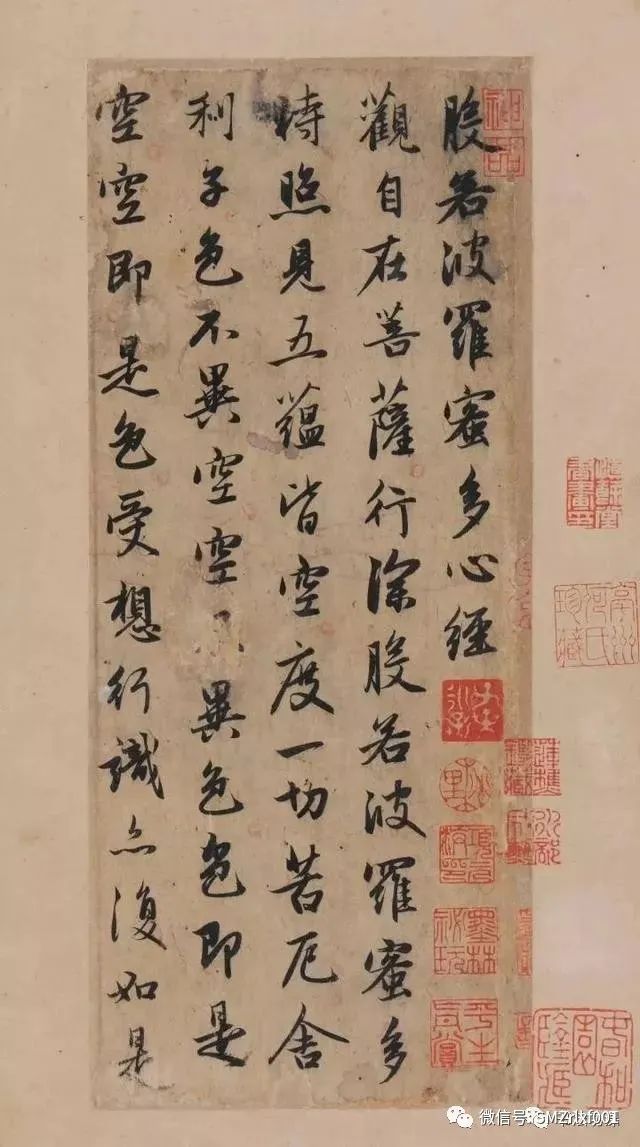 般若波羅蜜多心經
觀自在菩薩行深般若波羅蜜多
時照見五蘊皆空度一切苦厄舍
利子色不異空空不異色色即是
空空即是色受想行識亦復如是
神品
墨林祕玩
平生真賞
微信号: